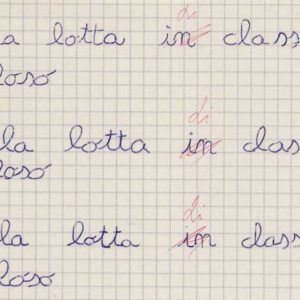 di
a lotta in class
loso
di
la lotta in clas
loso
di
la lotta in class
loso